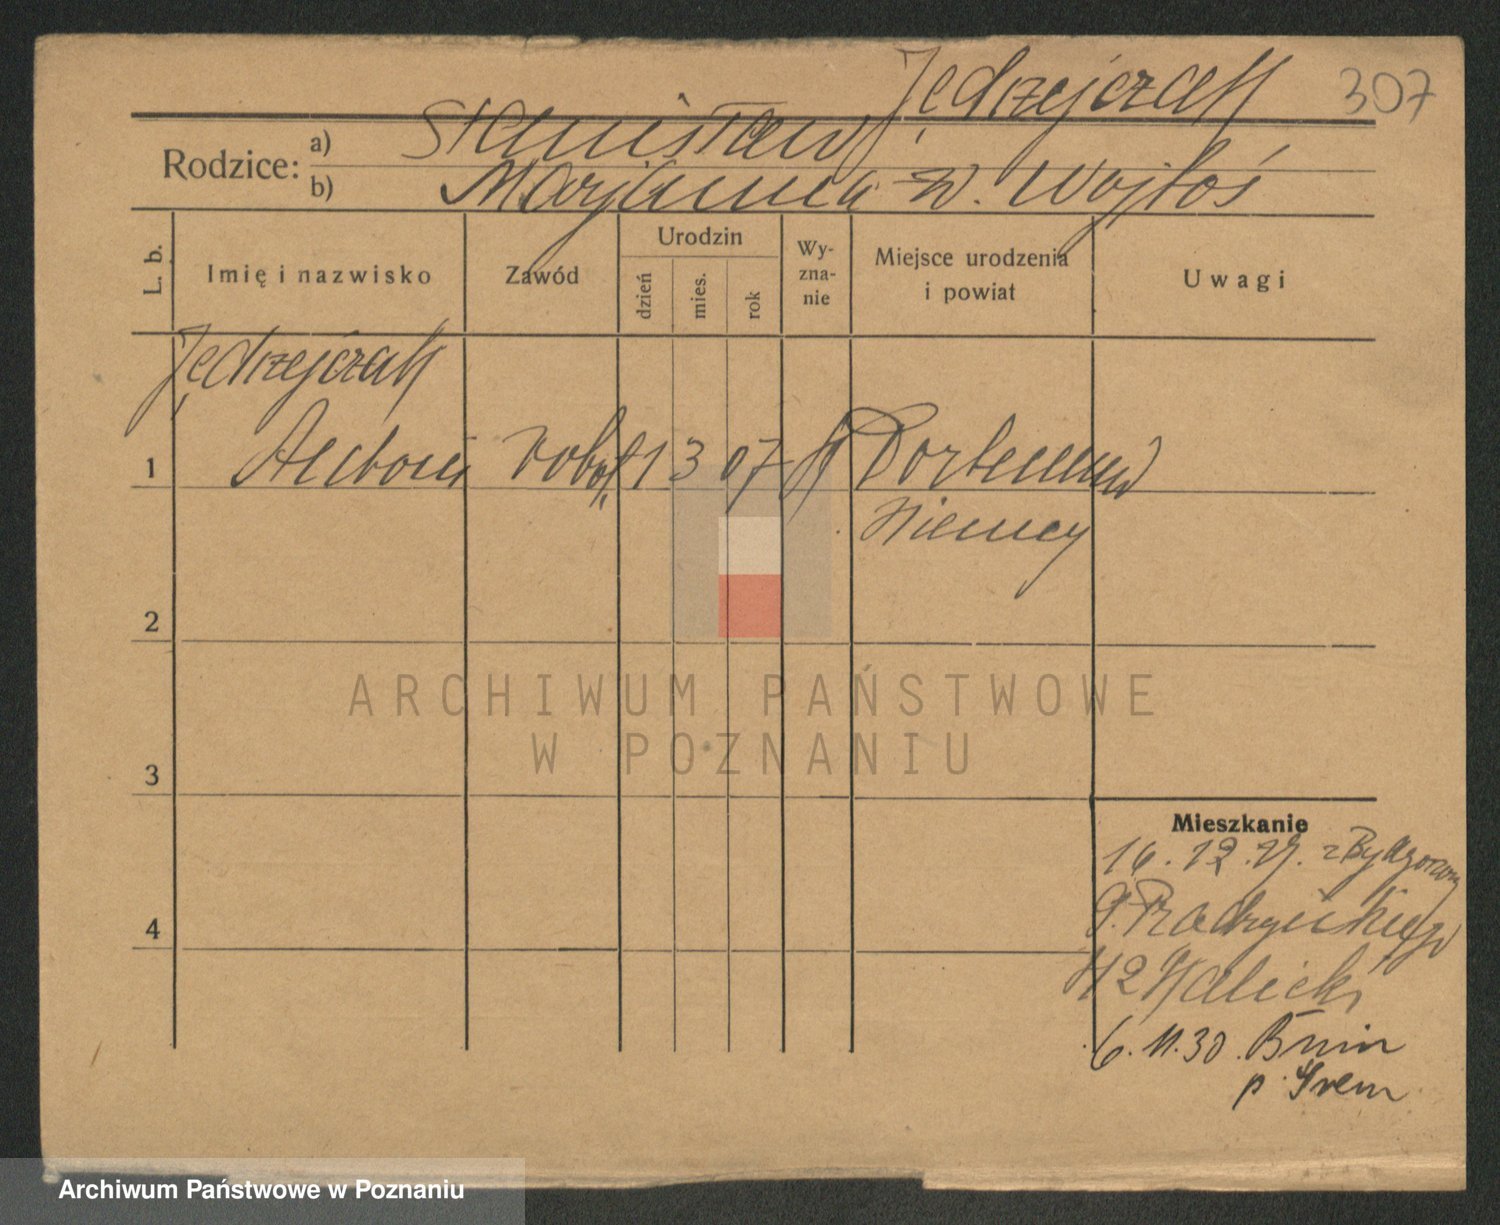 Jędrzejczak 307
Rodzice: a) Stanisław
b) Marjanna z. Wojtoś
L. b.
Imię i nazwisko
Zawód
Urodzin
dzień
mies.
rok
Wy-
zna-
nie
Miejsce urodzenia
i powiat
Uwagi
Jędrzejczak
1 Antoni robot. 1 3 07 k Dortmund
Niemcy
2
3
4
Mieszkanie
16.12.29. z Bydgoszczy
42 Kalicki
6.11.30. Bnin
p. Śrem
ARCHIWUM PAŃSTWOWE
W POZNANIU
Archiwum Państwowe w Poznaniu